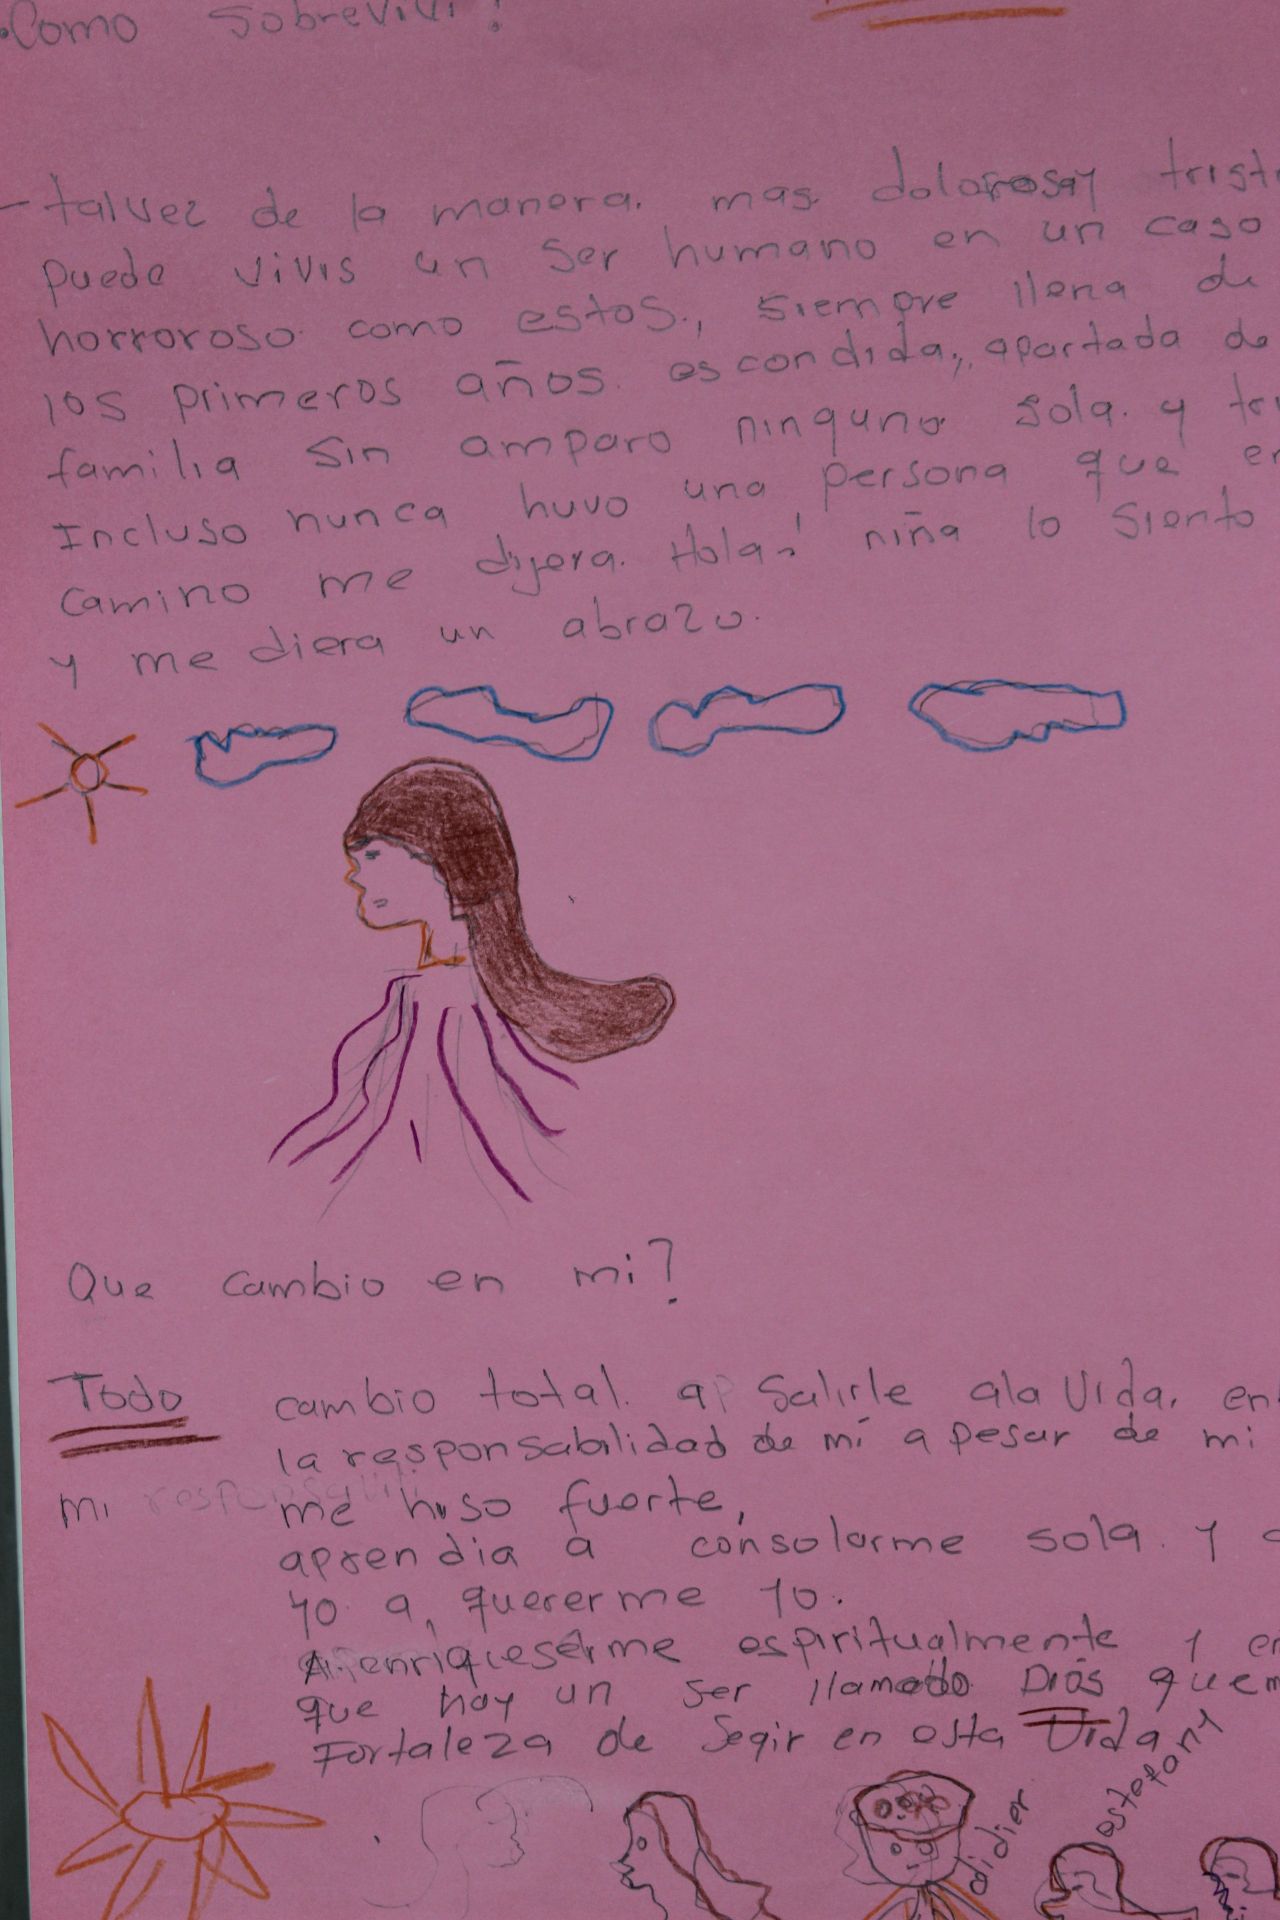 .Como sobrevivi?
- talvez de la manera. mas dolorosay trist
puede vivis un ser humano en un caso
horroroso como estos., siempre llena de
los primeros años escondida,, apartada de
familia sin amparo ninguno. sola. y tri
Incluso nunca huvo una persona que en
camino me dijera. Hola,! niña lo siento
y me diera un abrazo.
Que cambio en mi?
Todo cambio total. ap salirle ala vida. en
la responsabilidad de mí a pesar de mi
mi me hiso fuerte,
aprendia a consolarme sola. y
yo a, quererme yo.
A. enriqueserme espiritualmente y en
que hay un ser llamado Dios quem
Fortaleza de segir en esta Vida
didier
estefany